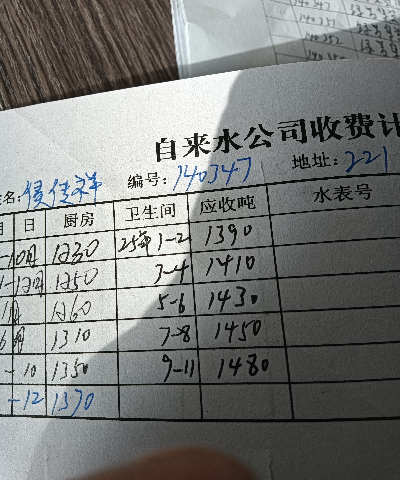 140347
140351
140352
自来水公司收费计
名:侯佳祥 编号:140347 地址:221
月 日 厨房 卫生间 应收吨 水表号
-10月 1230 25年1-2 1390
1-12月 1250 3-4 1410
1月 1260 5-6 1430
6月 1310 7-8 1450
-10 1350 9-11 1480
-12 1370